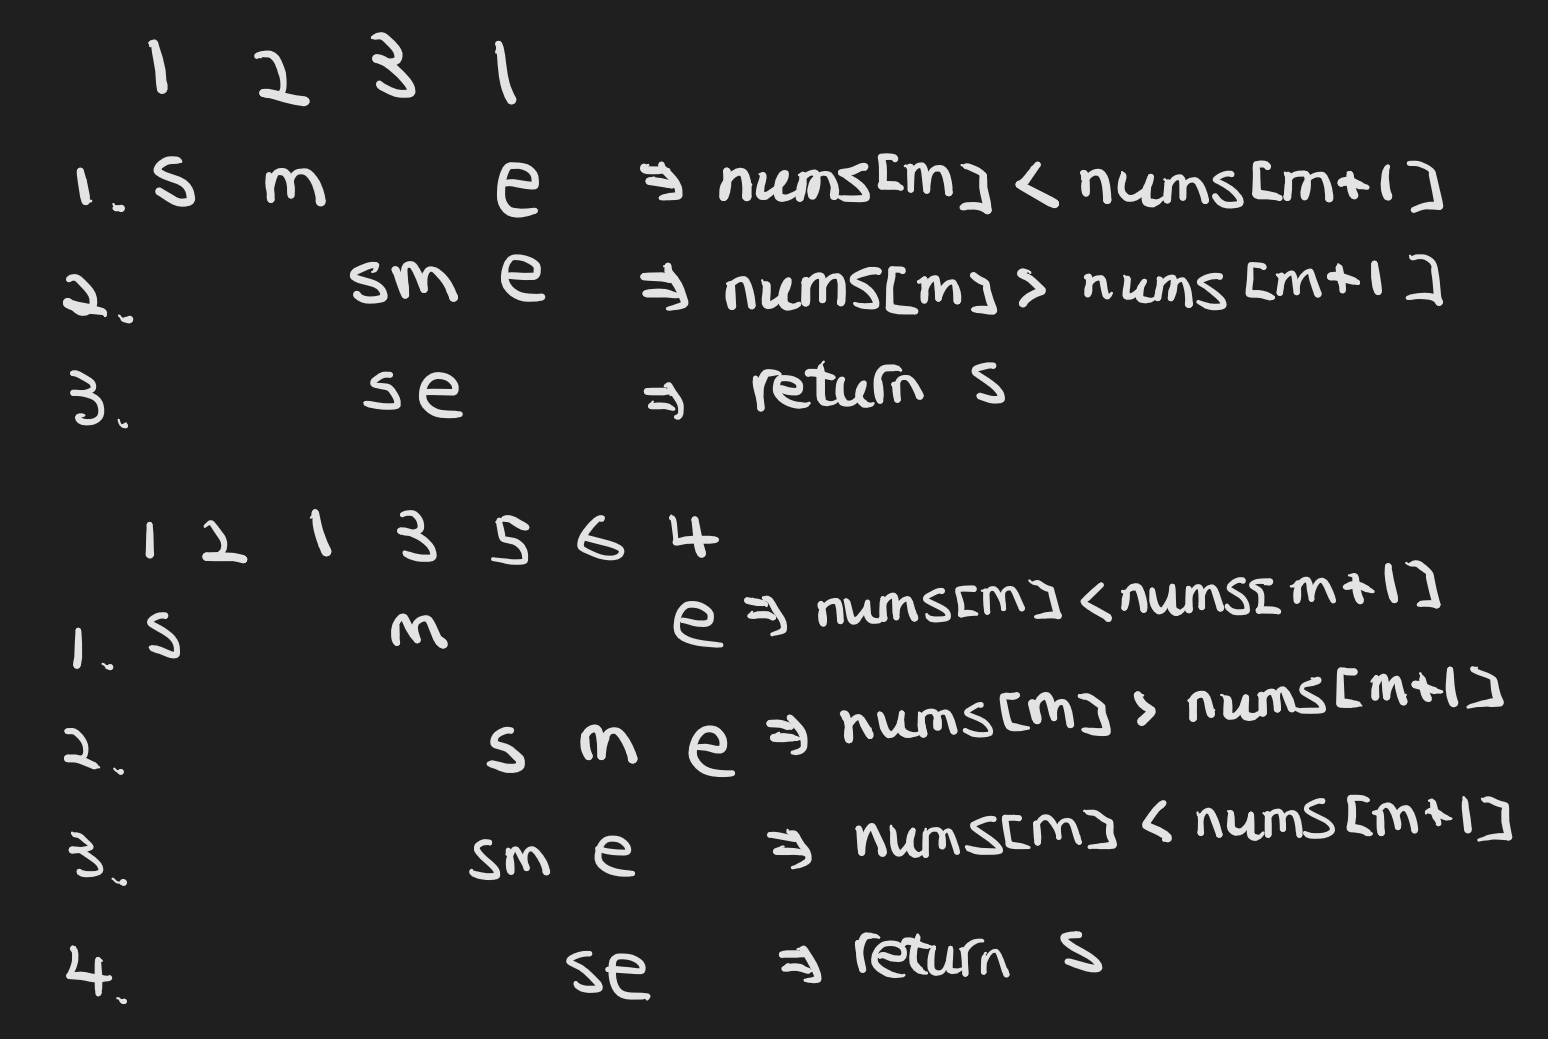 1 2 3 1
1. s m e ⇒ nums[m] < nums[m+1]
2. sm e ⇒ nums[m] > nums[m+1]
3. se ⇒ return s
1 2 1 3 5 6 4
1. s m e ⇒ nums[m] < nums[m+1]
2. s m e ⇒ nums[m] > nums[m+1]
3. sm e ⇒ nums[m] < nums[m+1]
4. se ⇒ return s